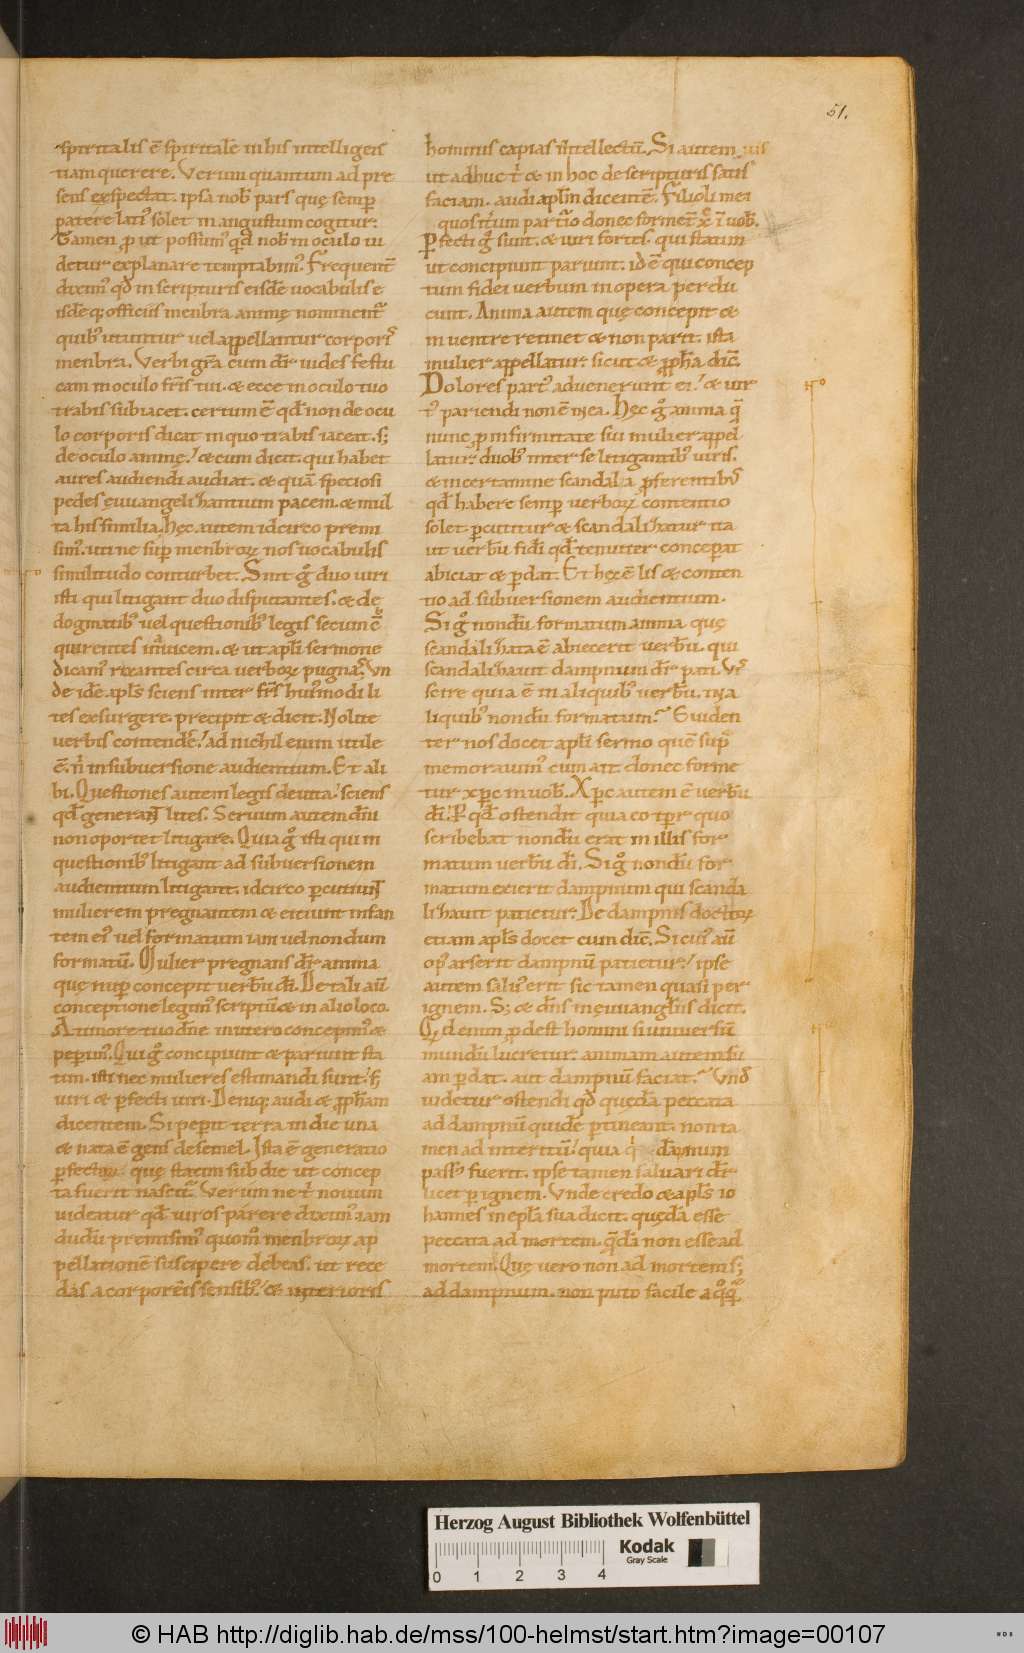 51.
spiritalis ē spiritale in his intelligen
tiam querere. Verum quantum ad pre
sens exspectat. ipsa nob̄ pars quę semp
patere lati᷒ solet in angustum cogitur.
Tamen prout possum᷒ qd nob̄ in oculo ui
detur explanare temptabim᷒. Frequent̄
dixim᷒ qd̄ in scripturis eisdē uocabulis e
isdēq; officiis menbra animę nominent᷒
quib᷒ utuntur uel appellantur corporis
menbra. Verbi gr̄a. cum dr̄ uides festu
cam in oculo fr̄is tui. & ecce in oculo tuo
trabis subiacet. certum ē qd̄ non de ocu
lo corporis dicat in quo trabis iaceat. s;
de oculo animę. & cum dicit. qui habet
aures audiendi audiat. & quā speciosi
pedes euuangelizantium pacem. & mul
ta his similia. Hęc autem idcirco premi
sim᷒. uti ne sup menbroꝝ nos uocabulis
similitudo conturbet. Sint g° duo uiri
isti qui litigant duo disputantes. & de
dogmatib᷒ uel questionib᷒ legis secum
quirentes inuicem. & ut apl̄i sermone
dicam᷒ rixantes circa uerboꝝ pugnas. Vn
de idē apl̄s sciens inter fr̄s huiusmodi li
tes exsurgere. precipit & dicit. Nolite
uerbis contendē. ad nichil enim utile
ē. n̄ in subuersione audientium. Et ali
bi. Questiones autem legis deuita. sciens
qd̄ generant lites. Seruum autem dn̄i
non oportet litigare. Quia g° isti qui in
questionib᷒ litigant ad subuersionem
audientium litigant. idcirco pcutiunt
mulierem pregnantem & eiciunt infan
tem ei᷒ uel formatum iam uel nondum
formatū. Mulier pregnans dr̄ anima
quę nup concepit uerbū dī. De tali aū
conceptione legim᷒ scriptū & in alio loco.
A timore tuo dn̄e in utero concepim᷒ &
pepim᷒. Qui g° concipiunt & pariunt sta
tim. isti nec mulieres estimandi sunt. s;
uiri & pfecti uiri. Deniq; audi & ꝓph̄am
dicentem. Si pepit terra in die una
& nata ē gens de semel. Ista ē generatio
pfectoꝝ quę statim sub die ut concep
ta fuerit nascit᷒. Verum ne t̄ nouum
uideatur qd̄ uiros parere dixim᷒. iam
dudū premisim᷒ quom° menbroꝝ ap
pellationē suscipere debeas. ut rece
das a corporeis sensib᷒. & interioris
hominis capias intellectū. Si autem uis
ut adhuc t̄ & in hoc de scripturis satis
faciam. audi apl̄m dicentē. Filioli mei
quos iterum parturio donec formet᷒ xp̄c ī uob̄.
Pfecti g° sunt. & uiri fortes. qui statim
ut concipiunt pariunt. id ē qui concep
tum fidei uerbum in opera perdu
cunt. Anima autem quę concepit &
in uentre retinet & non parit. ista
mulier appellatur. sicut & ꝓph̄a dic̄.
Dolores part᷒ aduenerunt ei. & uir
t᷒ pariendi non ē in ea. Hęc g° anima q̄
nunc ꝓ infirmitate sui mulier appel
latur. duob᷒ inter se litigantib᷒ uiris.
& in certamine scandala ꝓferentib᷒
qd̄ habere semp uerboꝝ contentio
solet. pcutitur & scandalizatur ita
ut uerbū fidī qd̄ tenuiter concepat
abiciat & pdat. Et hęc ē lis & conten
tio ad subuersionem audientium.
Si g° nondū formatum anima quę
scandalizata ē abiecerit uerbū. qui
scandalizauit dampnum dr̄ pati. Vis
scire quia ē in aliquib᷒ uerbū. in a
liquib᷒ nondū formatum? Euiden
ter nos docet apl̄i sermo quē sup̄
memorauim᷒ cum ait. donec forme
tur xp̄c in uob̄. Xp̄c autem ē uerbū
dī. P qd̄ ostendit quia eo tp̄r quo
scribebat nondū erat in illis for
matum uerbū dī. Si g° nondū for
matum exierit dampnum qui scanda
lizauit patietur. De dampnis doctoꝝ
etiam apl̄s docet cum dic̄. Si cui᷒ aū
op᷒ arserit dampnū patietur. ipse
autem salu᷒ erit sic tamen quasi per
ignem. S; & dn̄s in euuangliis dicit.
Q̨d enim ꝓdest homini si uniuersū
mundū lucretur. animam autem su
am pdat. aut dampnū faciat? Vnd̄
uidetur ostendi qd̄ quędā peccata
ad dampnū quidē ptineant. non ta
men ad interitū. quia q̄ dampnum
pass᷒ fuerit. ipse tamen saluari dr̄
licet p ignem. Vnde credo & apl̄s io
hannes in epl̄a sua dicit. quędā esse
peccata ad mortem. quędā non esse ad
mortem. Quę uero non ad mortem s;
ad dampnum. non puto facile a q°q̄
Herzog August Bibliothek Wolfenbüttel
0 1 2 3 4
Kodak
Gray Scale
© HAB http://diglib.hab.de/mss/100-helmst/start.htm?image=00107